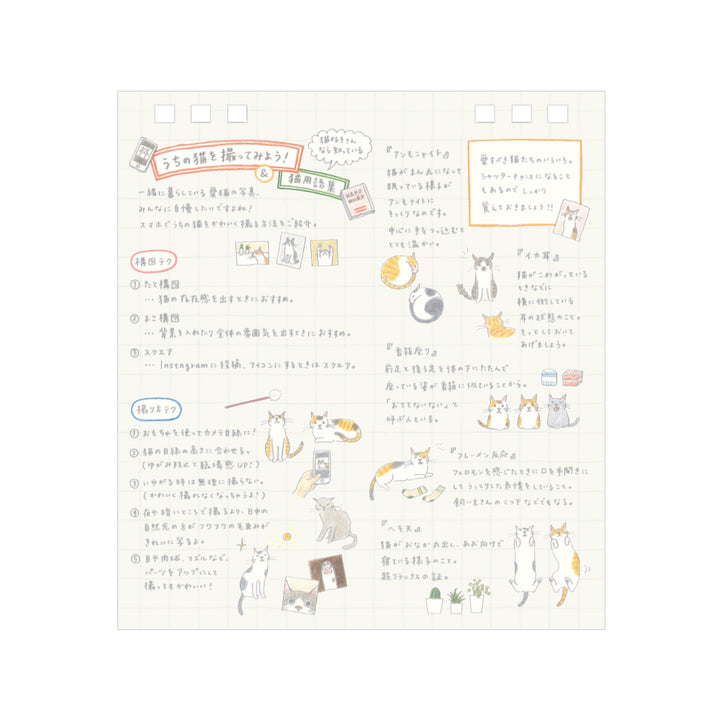 うちの猫を撮ってみよう!
&
猫用語集
猫好きさん
なら知っている
一緒に暮らしている愛猫の写真、
みんなに自慢したいですよね!
スマホでうちの猫をかわいく撮る方法をご紹介。
構図テク
① たて構図
… 猫の存在感を出すときにおすすめ。
② よこ構図
… 背景を入れたり全体の雰囲気を出すときにおすすめ。
③ スクエア
… Instagramに投稿、アイコンにするときはスクエア。
撮り方テク
① おもちゃを使ってカメラ目線に!
② 猫の目線の高さに合わせる。
(ゆがみ防止と臨場感UP!)
③ いやがる時は無理に撮らない。
(かわいく撮れなくなっちゃうよ!)
④ 夜や暗いところで撮るより、日中の
自然光の方がフワフワの毛並みが
きれいに写るよ。
⑤ 目や肉球、マズルなど、
パーツをアップにして
撮ってもかわいい!
『アンモニャイト』
猫がまん丸になって
眠っている様子が
アンモナイトに
そっくりなのです。
中心に手をつっ込むと
とても温かい。
愛すべき猫たちのいろいろ。
シャッターチャンスになること
もあるので しっかり
覚えておきましょう!!
『イカ耳』
猫がこわがっている
ときなどに
横に倒している
耳の状態のこと。
そっとしておいて
あげましょう。
『香箱座り』
前足と後ろ足を体の下にたたんで
座っている姿が香箱に似ていることから。
「おててないない」と
呼ぶ人もいる。
『フレーメン反応』
フェロモンを感じたときに口を半開きに
してうっとりした表情をしていること。
飼い主さんのくつ下などでもなる。
『ヘソ天』
猫がおなか丸出し、あお向けで
寝ている様子のこと。
超リラックスの証。